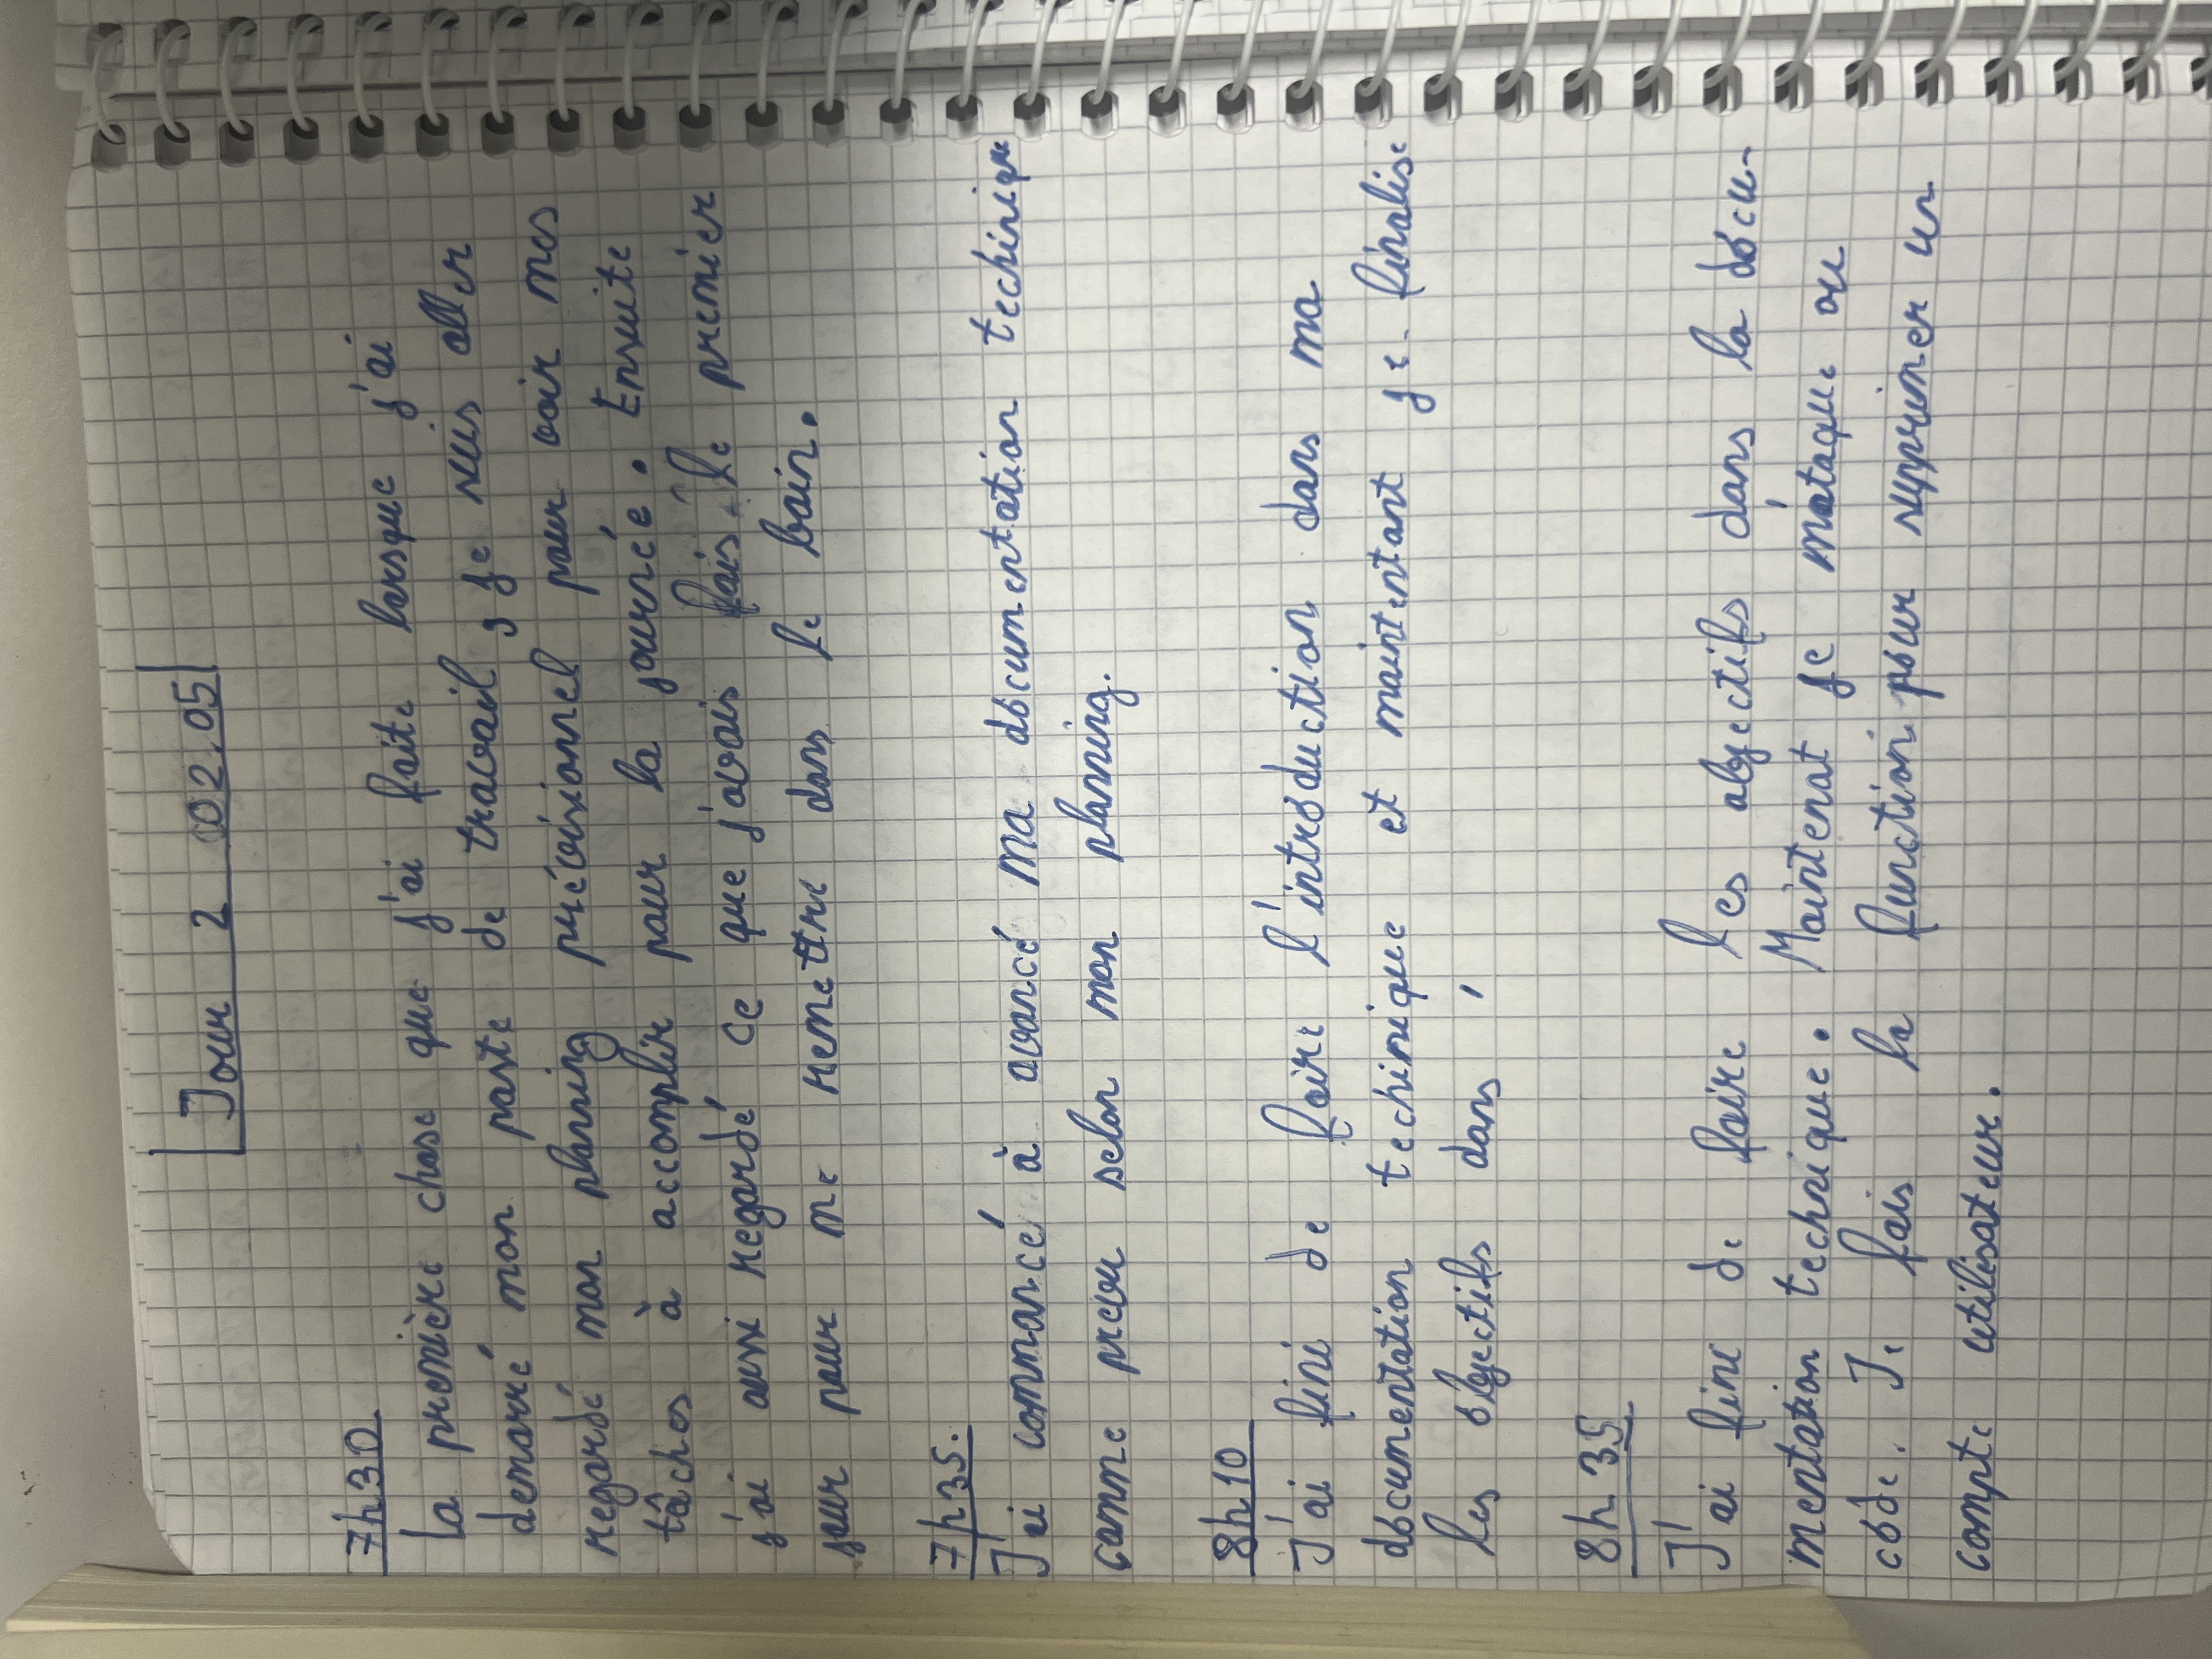 Jour 2 02.05
7h30
La première chose que j'ai faite lorsque j'ai
demarré mon poste de travail, je suis aller
regardé mon planning prévisionnel pour voir mes
tâches à accomplir pour la journée. Ensuite
j'ai aussi regardé ce que j'avais fais le premier
jour pour me remettre dans le bain.
7h35.
J'ai commancé à avancé ma documentation techinique
comme prevu selon mon planning.
8h10
J'ai fini de faire l'introduction dans ma
documentation techinique et maintentant je finalise
les objectifs dans
8h35
J'ai fine de faire les objectifs dans la docu-
mentation technique. Maintenat je m'ataque au
code. Je fais la function pour supprimer un
compte utilisateur.